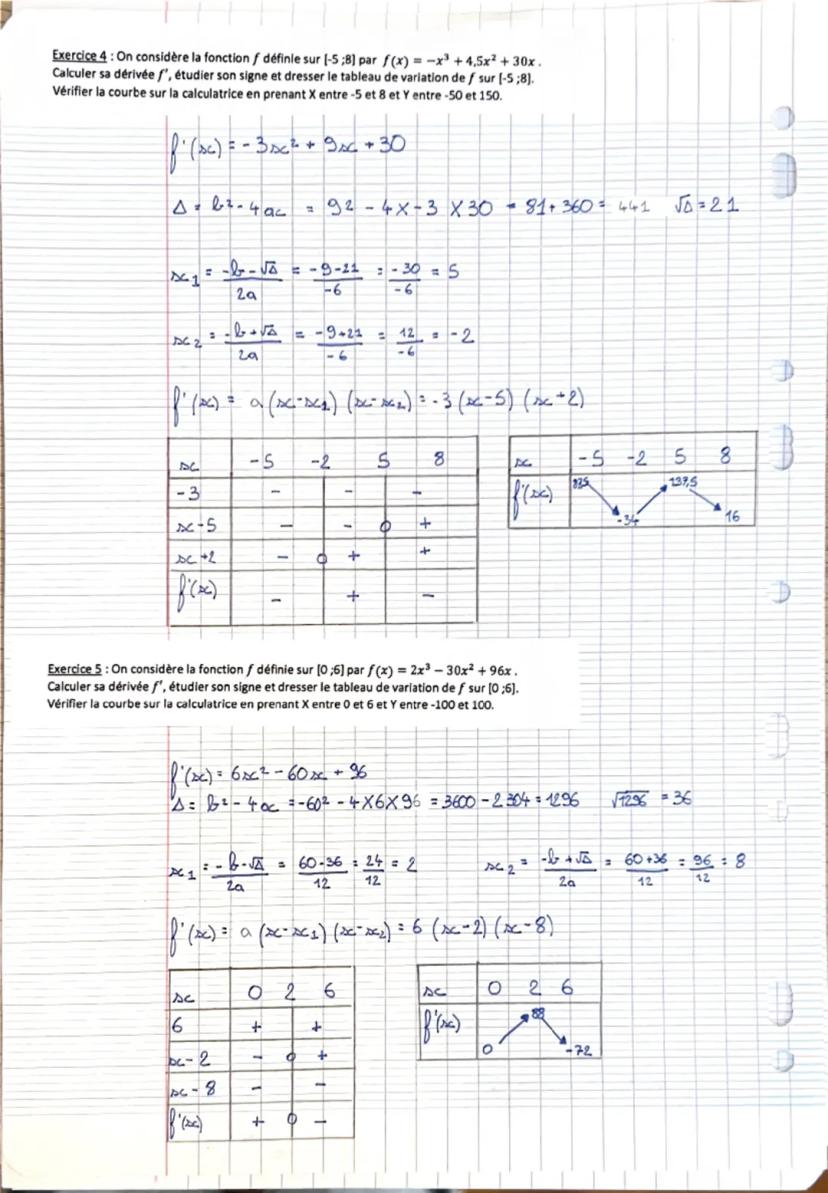 Exercice 4 : On considère la fonction f définie sur [-5 ;8] par f(x) = −x³ + 4,5x² + 30x .
Calculer sa dérivée f', étudier son signe et dresser le tableau de variation de f sur [-5 ;8].
Vérifier la courbe sur la calculatrice en prenant X entre -5 et 8 et Y entre -50 et 150.
f'(x) = - 3x² + 9x + 30
Δ = b² - 4ac = 9² - 4 x -3 x 30 = 81 + 360 = 441 √Δ = 21
x1 = -b-√Δ / 2a = -9-21 / -6 = -30 / -6 = 5
x2 = -b+√Δ / 2a = -9+21 / -6 = 12 / -6 = -2
f'(x) = a (x-x1) (x-x2) = -3 (x-5) (x+2)
x -5 -2 5 8
-3 - - -
x-5 - - 0 +
x+2 - 0 + +
f'(x) - + -
x -5 -2 5 8
f'(x) -34 137,5 16
Exercice 5 : On considère la fonction f définie sur [0 ;6] par f(x) = 2x³ − 30x² + 96x .
Calculer sa dérivée f', étudier son signe et dresser le tableau de variation de f sur [0 ;6].
Vérifier la courbe sur la calculatrice en prenant X entre 0 et 6 et Y entre -100 et 100.
f'(x) = 6x² - 60x + 96
Δ = b² - 4ac = -60² - 4x6x96 = 3600 - 2304 = 1296 √1296 = 36
x1 = -b-√Δ / 2a = 60-36 / 12 = 24 / 12 = 2 x2 = -b+√Δ / 2a = 60+36 / 12 = 96 / 12 = 8
f'(x) = a (x-x1) (x-x2) = 6 (x-2) (x-8)
x 0 2 6
6 + +
x-2 - 0 +
x-8 - -
f'(x) + 0 -
x 0 2 6
f'(x) 0 88 -72